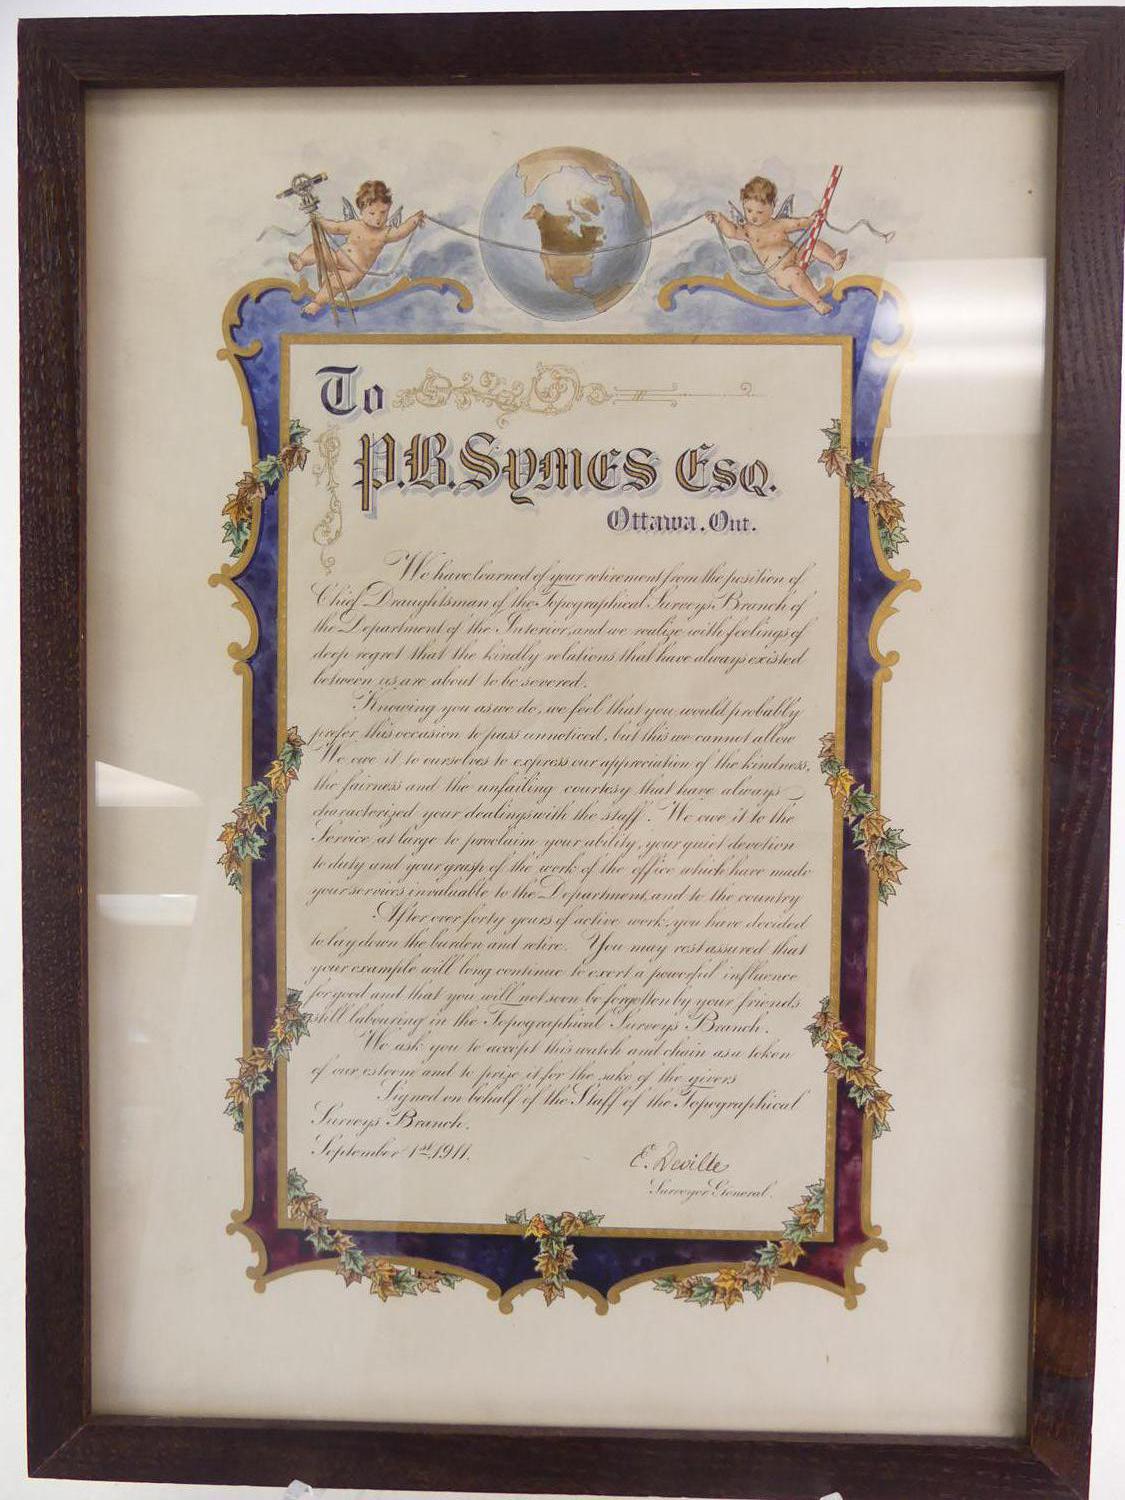 To
P.B. Symes Esq.
Ottawa. Ont.
We have learned of your retirement from the position of
Chief Draughtsman of the Topographical Surveys Branch of
the Department of the Interior, and we realize with feelings of
deep regret that the kindly relations that have always existed
between us are about to be severed.
Knowing you as we do, we feel that you would probably
prefer this occasion to pass unnoticed, but this we cannot allow
We owe it to ourselves to express our appreciation of the kindness,
the fairness and the unfailing courtesy that have always
characterized your dealings with the staff. We owe it to the
Service at large to proclaim your ability, your quiet devotion
to duty and your grasp of the work of the office which have made
your services invaluable to the Department, and to the country
After over forty years of active work, you have decided
to lay down the burden and retire. You may rest assured that
your example will long continue to exert a powerful influence
for good and that you will not soon be forgotten by your friends
still labouring in the Topographical Surveys Branch.
We ask you to accept this watch and chain as a token
of our esteem and to prize it for the sake of the givers
Signed on behalf of the Staff of the Topographical
Surveys Branch.
September 1st 1911.
E. Deville
Surveyor General.